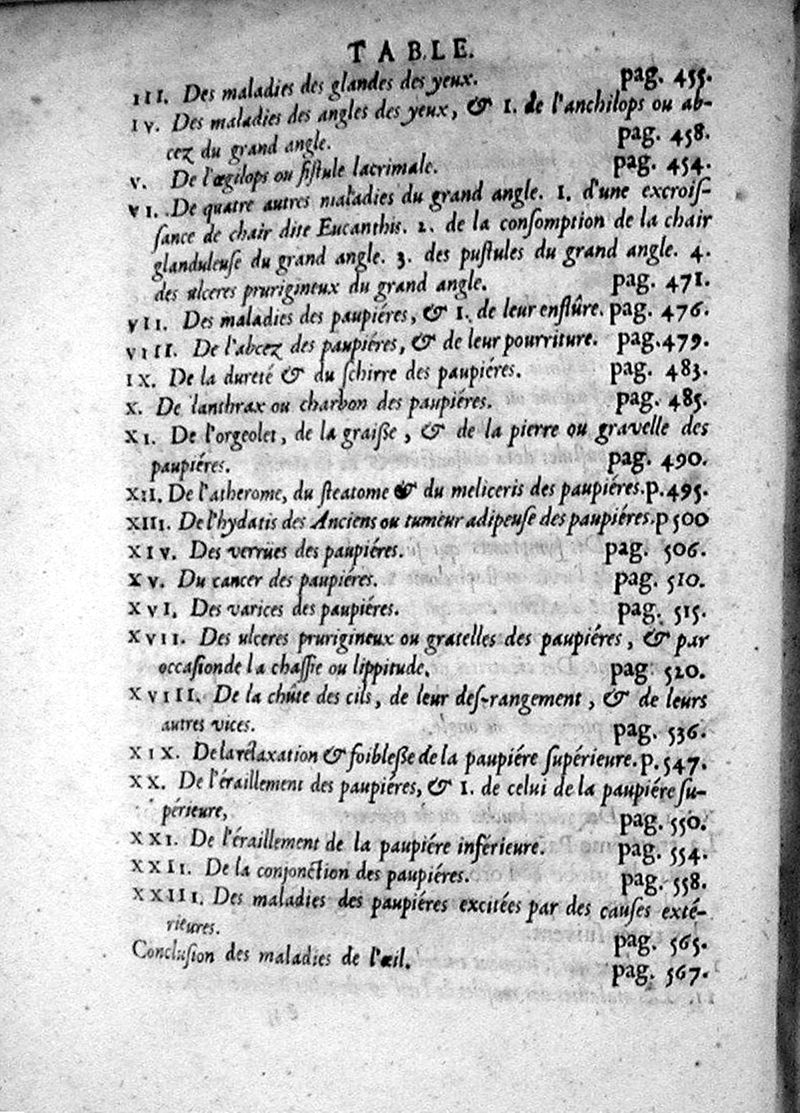 TABLE.
III. Des maladies des glandes des yeux. pag. 455.
IV. Des maladies des angles des yeux, & 1. de l'anchilops ou ab-
cez du grand angle. pag. 458.
V. De l'œgilops ou fistule lacrimale. pag. 454.
VI. De quatre autres maladies du grand angle. 1. d'une excrois-
sance de chair dite Eucanthis. 2. de la consomption de la chair
glanduleuse du grand angle. 3. des pustules du grand angle. 4.
des ulceres prurigineux du grand angle. pag. 471.
VII. Des maladies des paupiéres, & 1. de leur enflûre. pag. 476.
VIII. De l'abcez des paupiéres, & de leur pourriture. pag. 479.
IX. De la dureté & du schirre des paupiéres. pag. 483.
X. De lanthrax ou charbon des paupiéres. pag. 485.
XI. De l'orgeolet, de la graisse, & de la pierre ou gravelle des
paupiéres. pag. 490.
XII. De l'atherome, du steatome & du meliceris des paupiéres. p. 495.
XIII. De l'hydatis des Anciens ou tumeur adipeuse des paupiéres. p 500
XIV. Des verrües des paupiéres. pag. 506.
XV. Du cancer des paupiéres. pag. 510.
XVI. Des varices des paupiéres. pag. 515.
XVII. Des ulceres prurigineux ou gratelles des paupiéres, & par
occasionde la chassie ou lippitude. pag. 520.
XVIII. De la chûte des cils, de leur des-rangement, & de leurs
autres vices. pag. 536.
XIX. De la rélaxation & foiblesse de la paupiére supérieure. p. 547.
XX. De l'éraillement des paupiéres, & 1. de celui de la paupiére su-
périeure, pag. 550.
XXI. De l'éraillement de la paupiére inférieure. pag. 554.
XXII. De la conjonction des paupiéres. pag. 558.
XXIII. Des maladies des paupiéres excitées par des causes exté-
rieures. pag. 565.
Conclusion des maladies de l'œil. pag. 567.